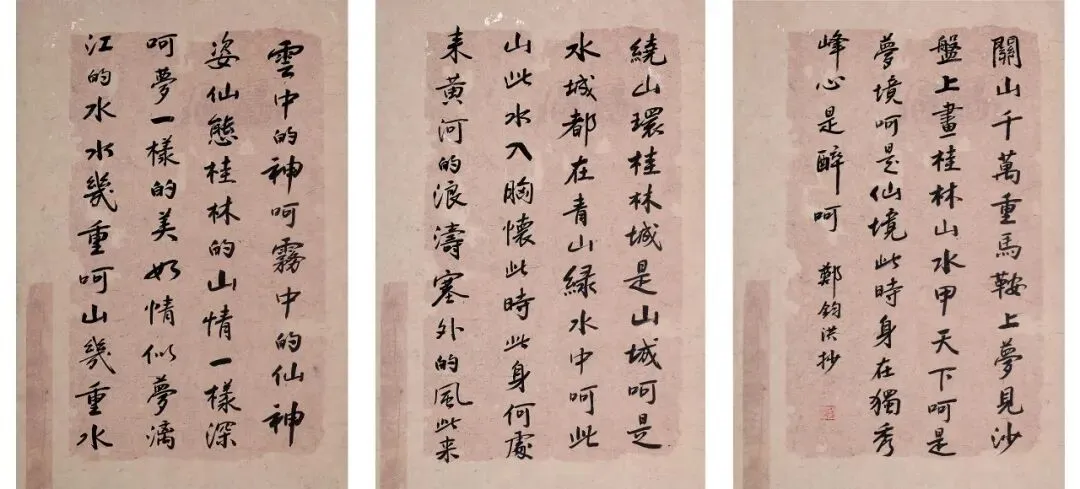 雲中的神呵霧中的仙神
姿仙態桂林的山情一樣深
呵夢一樣的美如情似夢漓
江的水水幾重呵山幾重水
繞山環桂林城是山城呵是
水城都在青山緑水中呵此
山此水入胸懷此時此身何處
来黄河的浪濤塞外的風此来
關山千萬重馬鞍上夢見沙
盤上畫桂林山水甲天下呵是
夢境呵是仙境此時身在獨秀
峰心是醉呵 鄭鈞洪抄